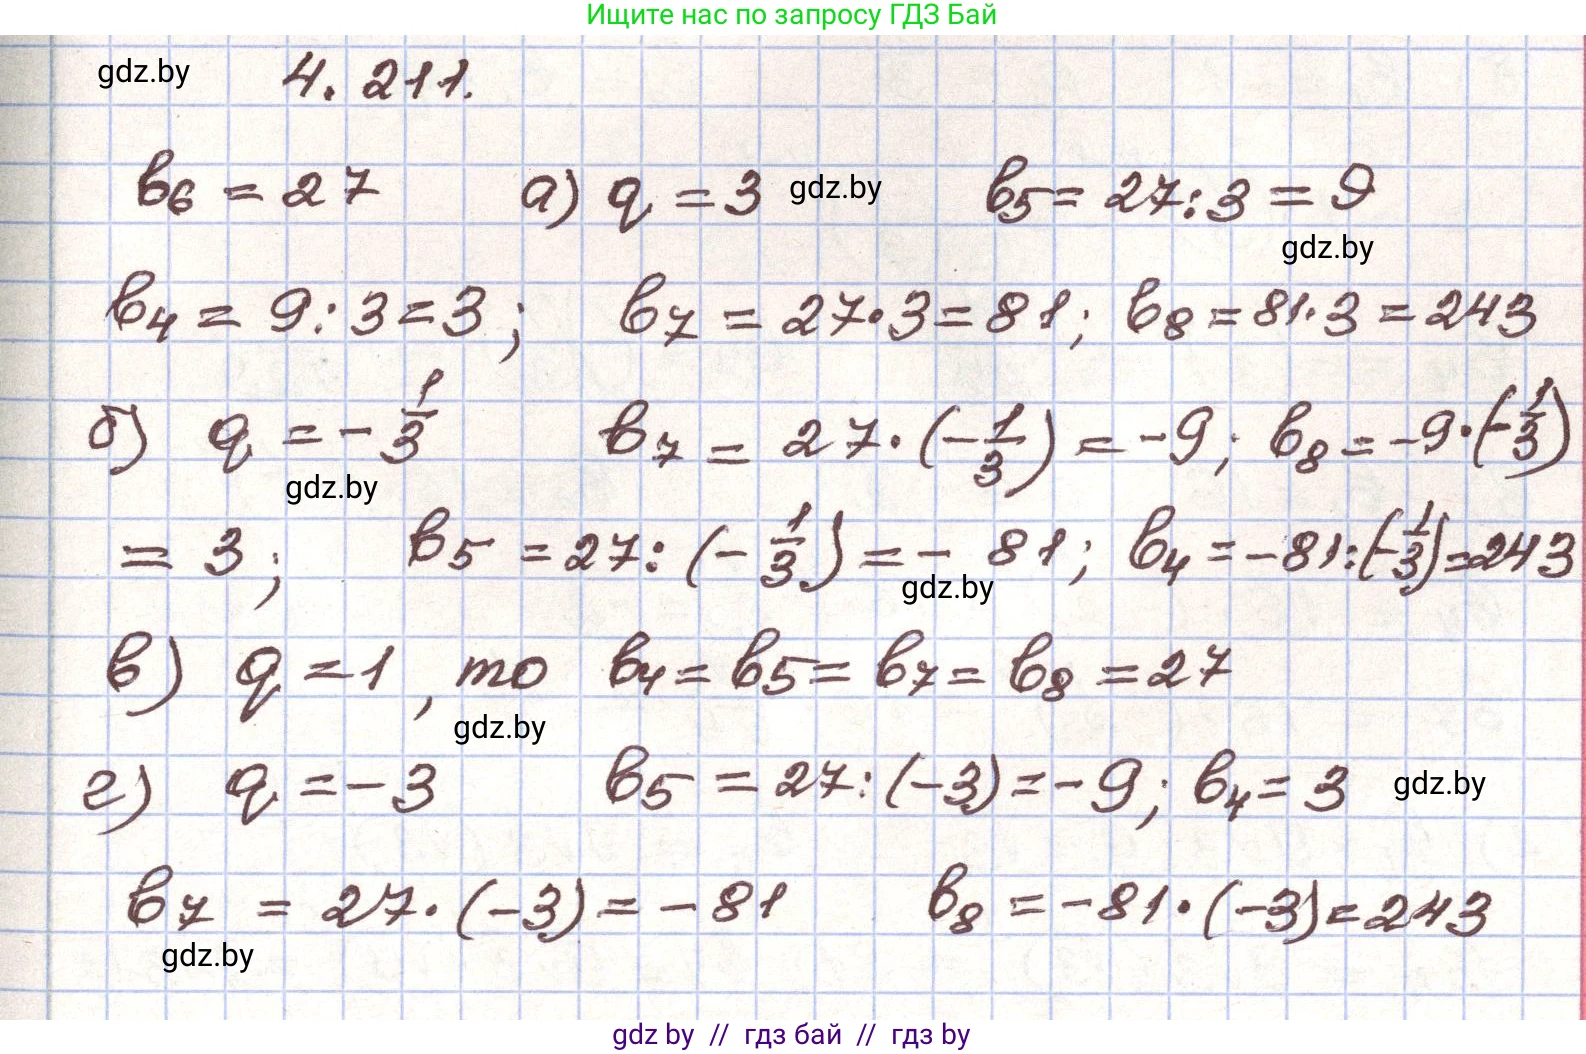 Ищите нас по запросу ГДЗ Бай
gdz.by 4.211.
b₆ = 27 а) q = 3 gdz.by b₅ = 27 : 3 = 9
gdz.by
b₄ = 9 : 3 = 3 ; b₇ = 27 · 3 = 81 ; b₈ = 81 · 3 = 243
б) q = - 1/3 b₇ = 27 · (- 1/3) = -9 ; b₈ = -9 · (- 1/3)
gdz.by
= 3 ; b₅ = 27 : (- 1/3) = - 81 ; b₄ = -81 : (- 1/3) = 243
gdz.by
в) q = 1 , то b₄ = b₅ = b₇ = b₈ = 27
gdz.by
г) q = -3 b₅ = 27 : (-3) = -9 ; b₄ = 3 gdz.by
b₇ = 27 · (-3) = -81 b₈ = -81 · (-3) = 243
gdz.by
gdz by // гдз бай // гдз by